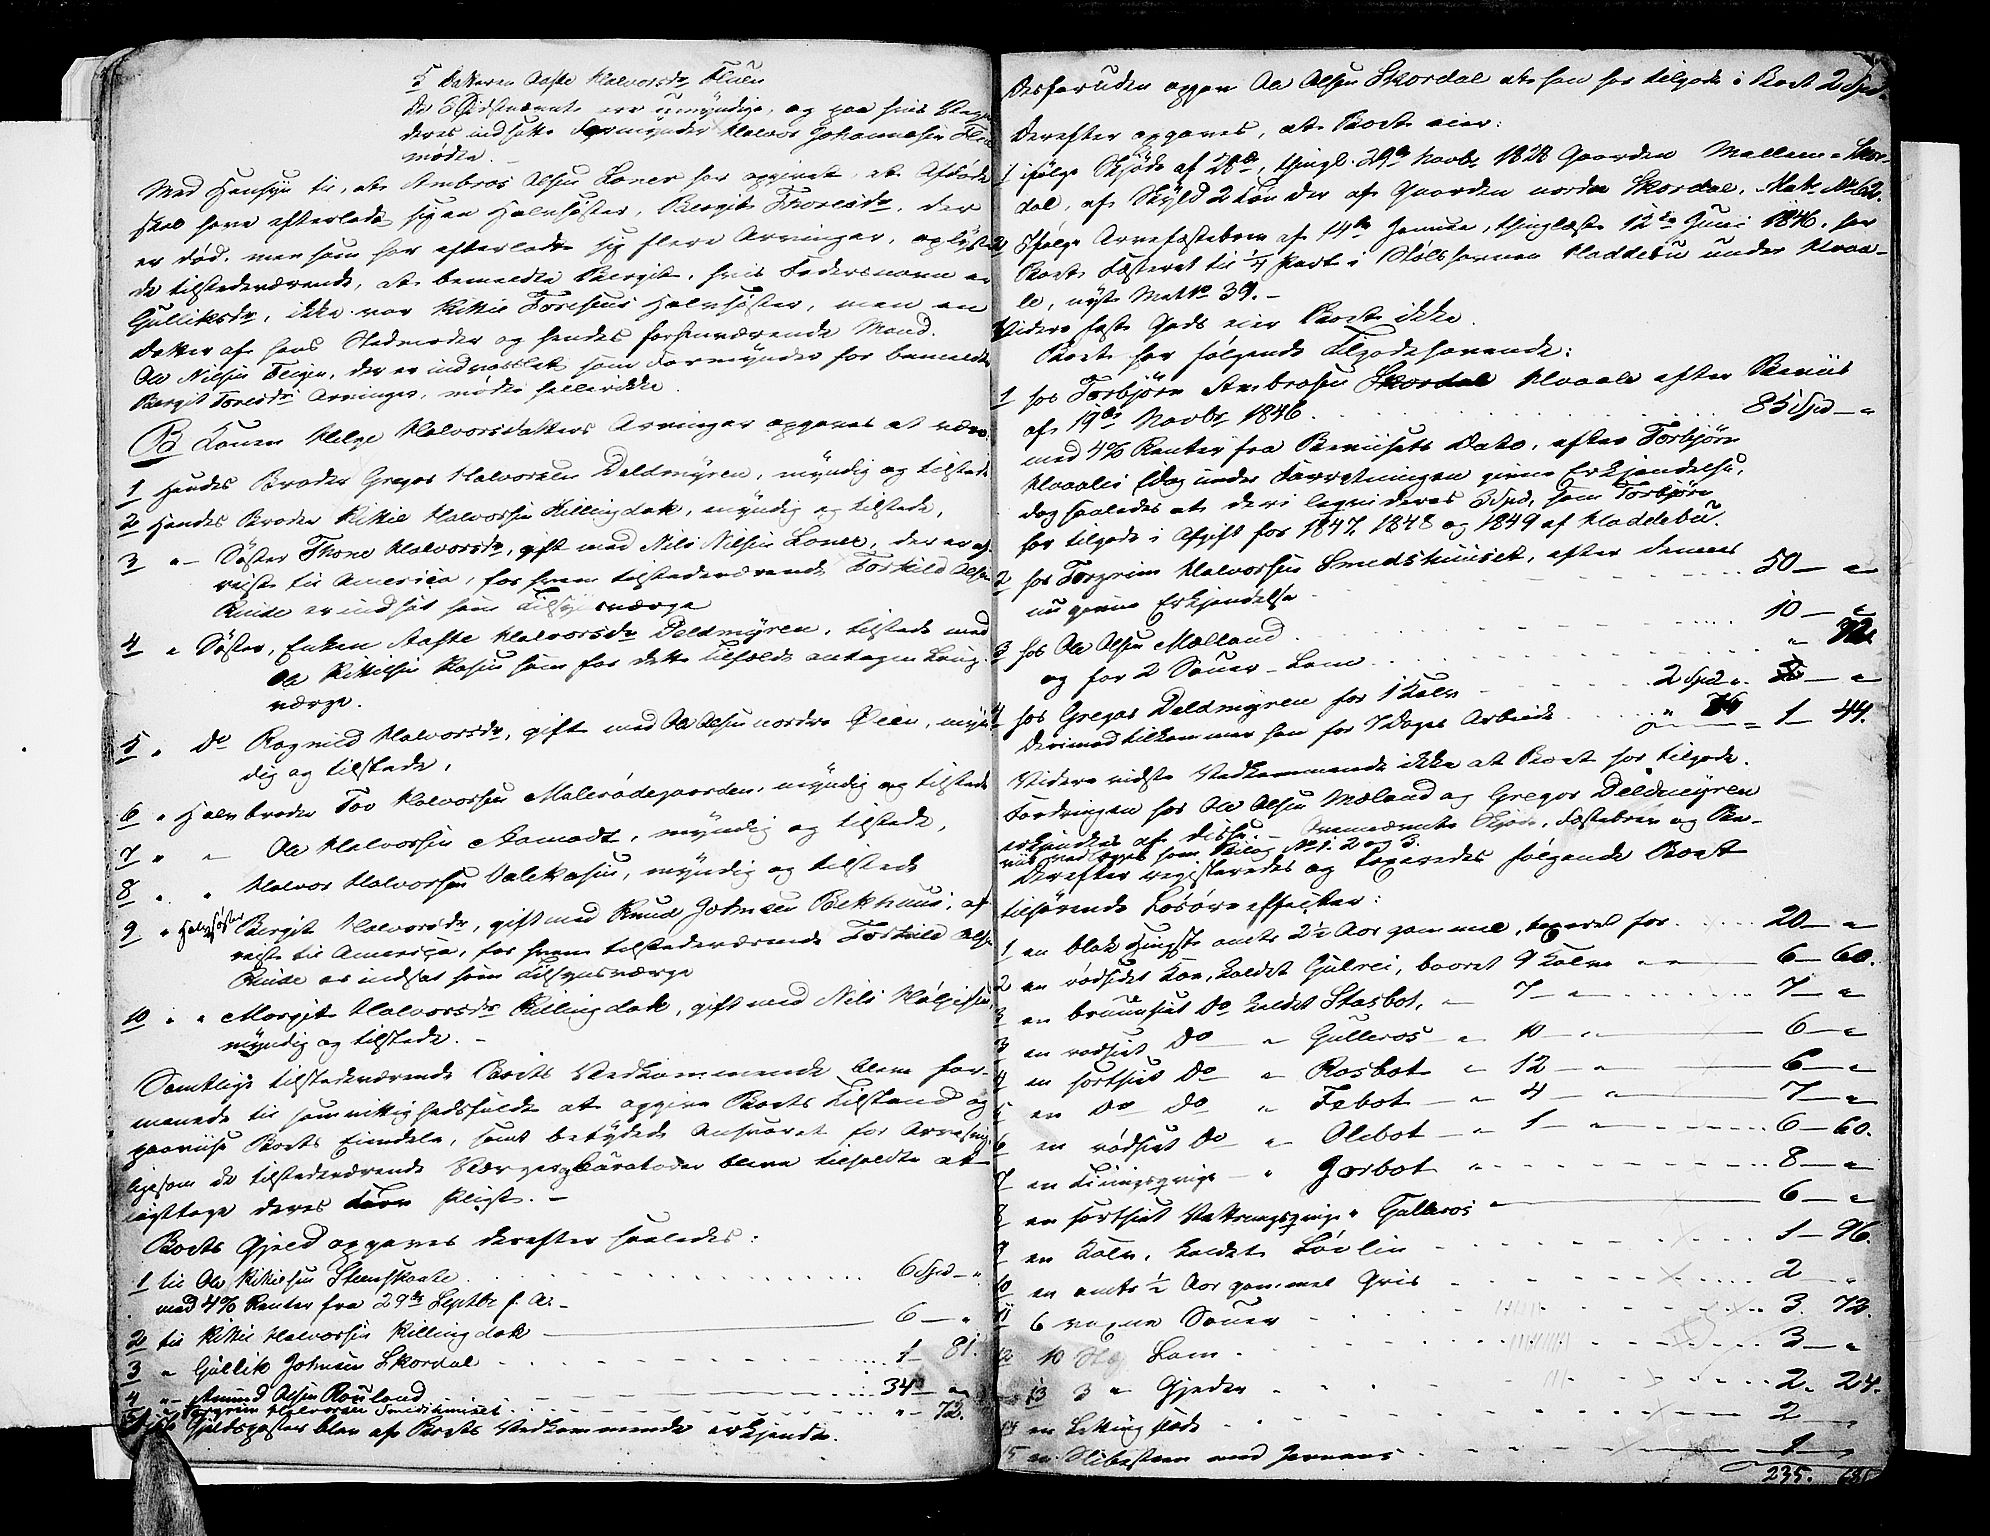 5 Datteren Aaste Halvorsdr Fluen
De 5 Sidstnævnte ere umyndige, og paa hvis Vegne
deres indsatte Formynder Halvor Johannesen Flu
mødte. –
Med Hensyn til, at Ambros Olsen Loner har opgivet, at Afdøde
skal have efterladt sig en Halvsøster, Bergit Thoresdr, der
er død, men som har efterladt sig flere Arvinger, oplyste
de tilstedeværende, at bemeldte Bergit, hvis Fadersnavn er
Gulliksdr, ikke var Kittil Toresens Halvsøster, men en
Datter af hans Stedmoder og hendes forhenværende Mand.
Ole Nilsen Teigen, der er indvarslet som Formynder for bemeldte
Bergit Toresdr Arvinger, mødte heller ikke.
B Konen Helge Halvorsdatters Arvinger opgaves at være
1 Hendes Broder Gregar Halvorsen Deldmyren, myndig og tilstede
2 Hendes Broder Kittil Halvorsen Killingdak, myndig og tilstede,
3 " – Søster Thone Halvorsdr, gift med Nils Nilsen Loner, der er af-
reist til America, for hvem tilstedeværende Torkild Olsen
Ruide er indsat som Tilsynsværge
4 " Søster, Enken Aaste Halvorsdr Deldmyren, tilstede med
Ole Kittilsen Kasin som for dette Tilfælde antagen Laug-
værge.
5 " Do Ragnild Halvorsdr, gift med Ole Olsen nordre Øien, myn-
dig og tilstede,
6 " Halvbroder Tov Halvorsen Malerødegaarden, myndig og tilstede
7 " " Ole Halvorsen Aamodt, myndig og tilstede,
8 " " Halvor Halvorsen Valekasin, myndig og tilstede
9 " Halvsøster Bergit Halvorsdr, gift med Knud Johnsen Bekhuus, af-
reist til America, for hvem tilstedeværende Torkild Olsen
Ruide er indsat som Tilsynsværge
10 " " Margit Halvorsdr Killingdak, gift med Nils Helgesen,
myndig og tilstede. –
Samtlige tilstedeværende Boets Vedkommende bleve for-
manede til samvittighedsfuldt at opgive Boets Tilstand og
paavise Boets Eiendele, samt betydede Ansvaret for Arvesvig
ligesom de tilstedeværende Værger og Curatorer bleve tilholdte at
iagttage deres Tarv Pligt. –
Boets Gjeld opgaves derefter saaledes:
1 til Ole Kittilsen Steenskaale . . . 6 Spd – "
med 4% Renter fra 29de Septbr f. A. –
2 til Kittil Halvorsen Killingdak — 6 – "
3 " Gullik Johnsen Skordal . . . 1 – 81.
4 " – Amund Olsen Rouland . . . 34 – "
5 " Torgrim Halvorsen Smedshuuset . . . " – 72.
Gjeldsposter blev af Boets Vedkommende erkjendte.
Desforuden opgav Ole Olsen Skordal at han har tilgode i Boet 2 Spd.
Derefter opgaves, at Boet eier:
1 ifølge Skjøde af 28de, thingl. 29de Novbr 1828 Gaarden Mellem-Skor-
dal, af Skyld 2 Tønder af Gaarden nordre Skordal, Mat. No 62.
2 Ifølge Arvefæstebrev af 14de Januar, thinglæst 12te Juni 1846, har
Boet Fæsteret til 1/4 Part i Stølshavnen Haddebu under Hvaa-
le, nyt Mat No 39. –
Videre fast Gods eier Boet ikke.
Boet har følgende Tilgodehavende:
1 hos Torbjørn Ambrosen Skordal Hvaale efter Beviis
af 19de Novbr 1846 . . . 85 Spd – "
med 4% Renter fra Bevisets Dato, efter Torbjørn
Hvaales idag under Forretningen givne Erkjendelse,
dog saaledes at deri leqvideres 3 Spd, som Torbjørn
har tilgode i Afgift for 1847, 1848 og 1849 af Haddebu.
2 hos Torgrim Halvorsen Smedshuuset, efter dennes
nu givne Erkjendelse . . . 50 – "
3 hos Ole Olsen Mælland . . . 10 – "
og for 2 Souer – Lam . . . "
4 hos Gregar Deldmyren for 1 Kalv . . . 2 Spd " .
Derimod tilkommer han for 7 Dages Arbeide . . . 1 – 44.
Videre vidste Vedkommende ikke at Boet har tilgode.
Fordringen hos Ole Olsen Mæland og Gregar Deldmyren
erkjendtes af disse. – Ovennævnte Skjøde, Fæstebrev og Be-
viis vedlægges som Bilag No 1. 2 og 3.
Derefter registeredes og taxeredes følgende Boet
tilhørende Løsøreeffecter:
1 en blak Hingst omtr 2 1/2 Aar gammel, taxeret for . . . 20 – "
2 en rødsidet Koe, kaldet Gulrei, baaret 9 Kalve " – " — 6 – 60.
3 en bruunsiet Do kaldet Stasbot, – " 7 – " . . . 7 – "
3 en rødsiet Do – " Gulleros – " 10 – " — 6 – "
4 en sortsiet Do – " Rosbot " 12 – " — 6 – "
5 en Do Do " Febot – " 4 – " — 7 – "
6 en rødsiet Do – " Olebot – " 1 – " . . . 6 – 60.
7 en Livingsqvige – " Gorbot " . . . 8 – "
8 en sortsiet Vettrungsqvige " Gulleros " — 6 – "
9 en Kalv, kaldet Løvlin . . . 1 – 96.
10 en omtr 1/2 Aar gammel Gris . . . 2 – "
11 6 voxne Souer . . . 3. 72.
12 10 Stk Lam . . . 3 – "
13 3 " Gjeder . . . 2. 24.
14 en . . . 2 – "
15 en Slibesteen med Jernaas . . . 1 – "
235.